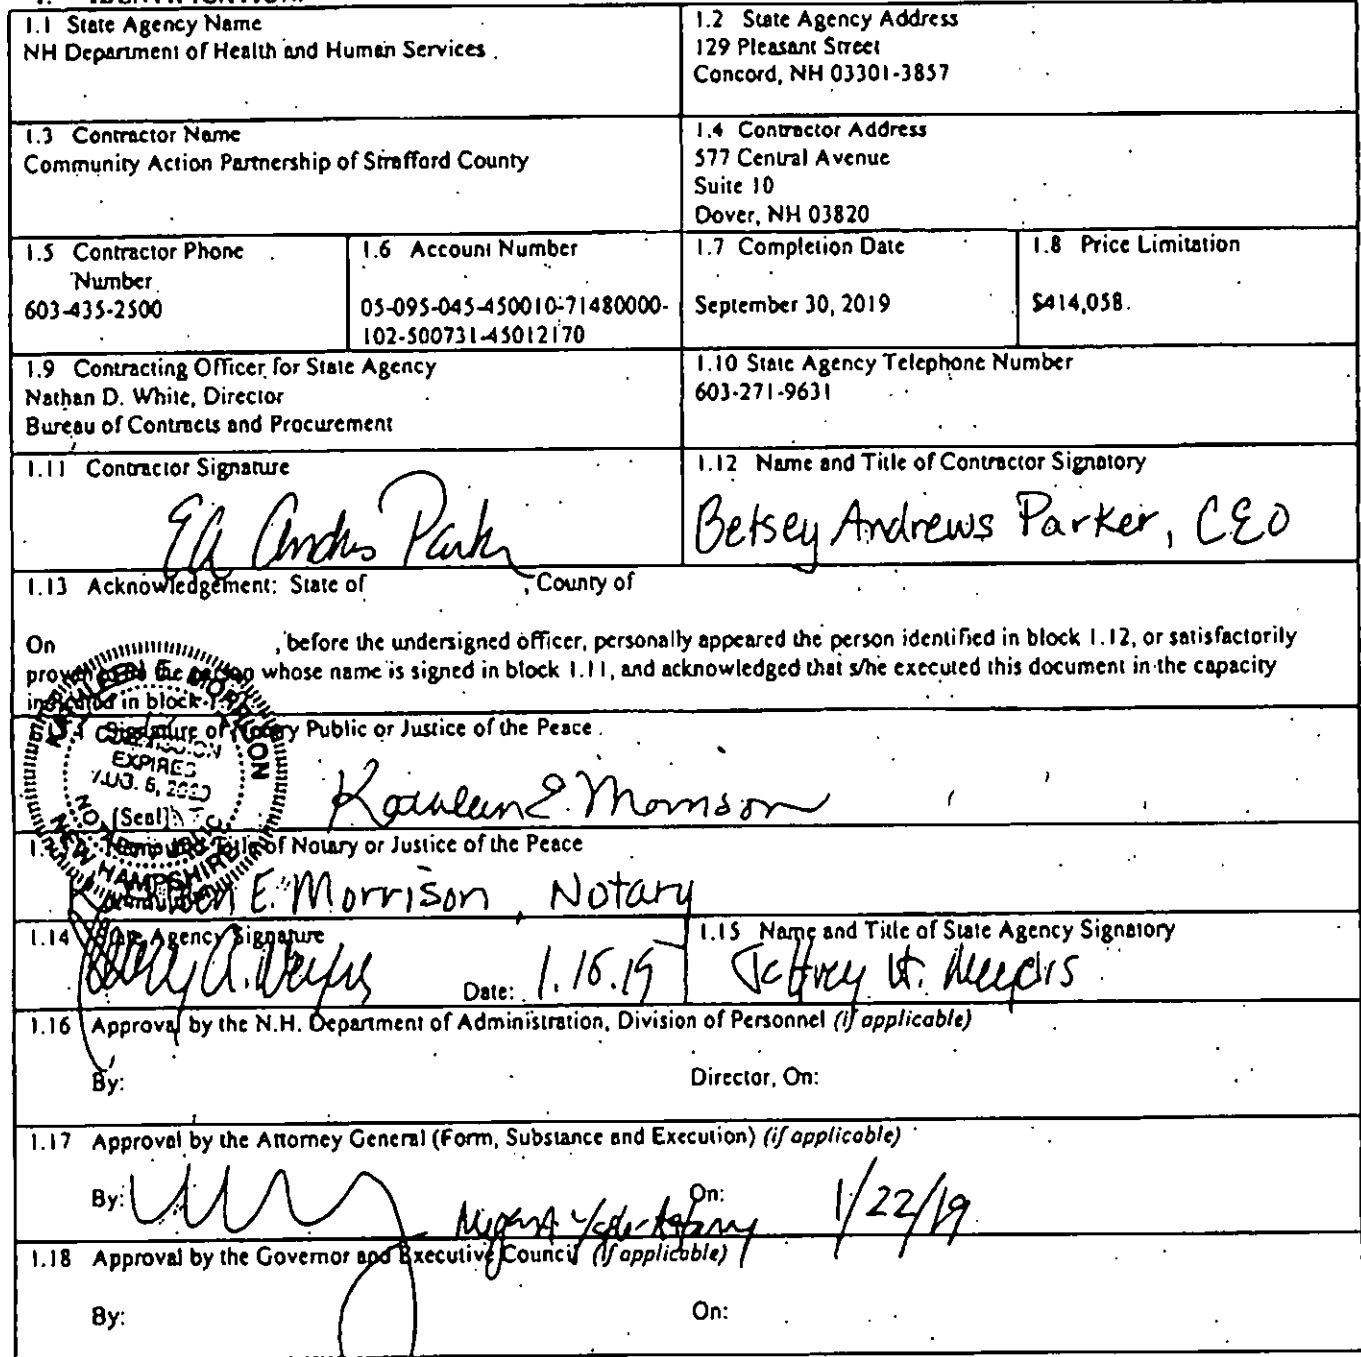 1.1 State Agency Name
NH Department of Health and Human Services
1.2 State Agency Address
129 Pleasant Street
Concord, NH 03301-3857
1.3 Contractor Name
Community Action Partnership of Strafford County
1.4 Contractor Address
577 Central Avenue
Suite 10
Dover, NH 03820
1.5 Contractor Phone
Number
603-435-2500
1.6 Account Number
05-095-045-450010-71480000-
102-500731-45012170
1.7 Completion Date
September 30, 2019
1.8 Price Limitation
$414,058.
1.9 Contracting Officer for State Agency
Nathan D. White, Director
Bureau of Contracts and Procurement
1.10 State Agency Telephone Number
603-271-9631
1.11 Contractor Signature
EA Andrews Parker
1.12 Name and Title of Contractor Signatory
Betsey Andrews Parker, CEO
1.13 Acknowledgement: State of , County of
On , before the undersigned officer, personally appeared the person identified in block 1.12, or satisfactorily
proven to be the person whose name is signed in block 1.11, and acknowledged that s/he executed this document in the capacity
indicated in block
Signature of Notary Public or Justice of the Peace
KATHLEEN E. MORRISON
COMMISSION
EXPIRES
AUG. 5, 2020
NOTARY PUBLIC
NEW HAMPSHIRE
[Seal]
Kathleen E. Morrison
Name and Title of Notary or Justice of the Peace
E. Morrison, Notary
1.14 State Agency Signature
Date: 1.16.19
1.15 Name and Title of State Agency Signatory
Jeffrey A. Meyers
1.16 Approval by the N.H. Department of Administration, Division of Personnel (if applicable)
By: Director, On:
1.17 Approval by the Attorney General (Form, Substance and Execution) (if applicable)
By: On: 1/22/19
1.18 Approval by the Governor and Executive Council (if applicable)
By: On: